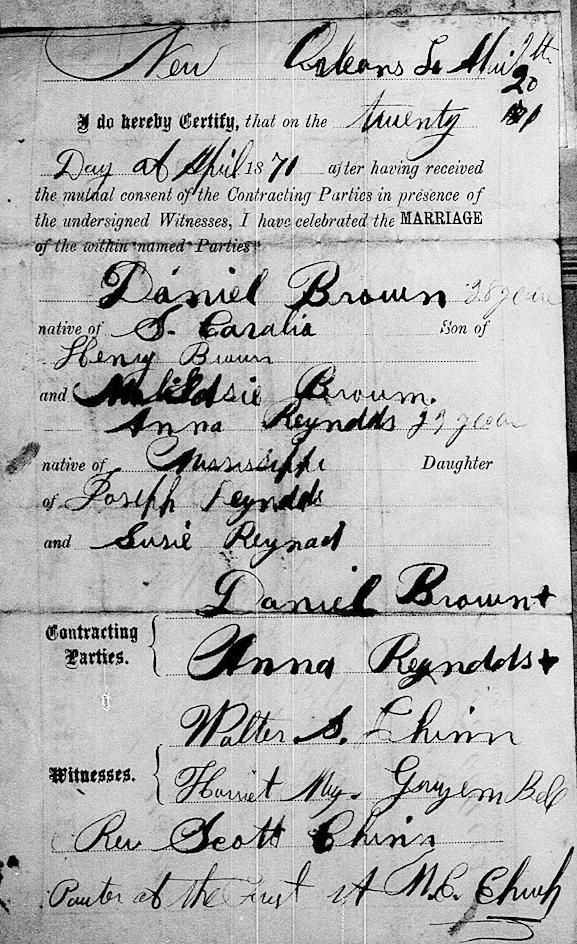 New Orleans La April 20th
I do hereby Certify, that on the twenty 71
Day of April 1871 after having received
the mutual consent of the Contracting Parties in presence of
the undersigned Witnesses, I have celebrated the MARRIAGE
of the within named Parties
Daniel Brown 28 year
native of S. Caralia Son of
Henry Brown
and Brown.
Anna Reynolds year
native of Mississippi Daughter
of Joseph Reynolds
and Susie Reynad
Daniel Brown +
Contracting Parties.
Anna Reynolds +
Walter S. Chinn
Witnesses.
Harriet Bell
Rev Scott Chinn
of the First St M.C. Chuch